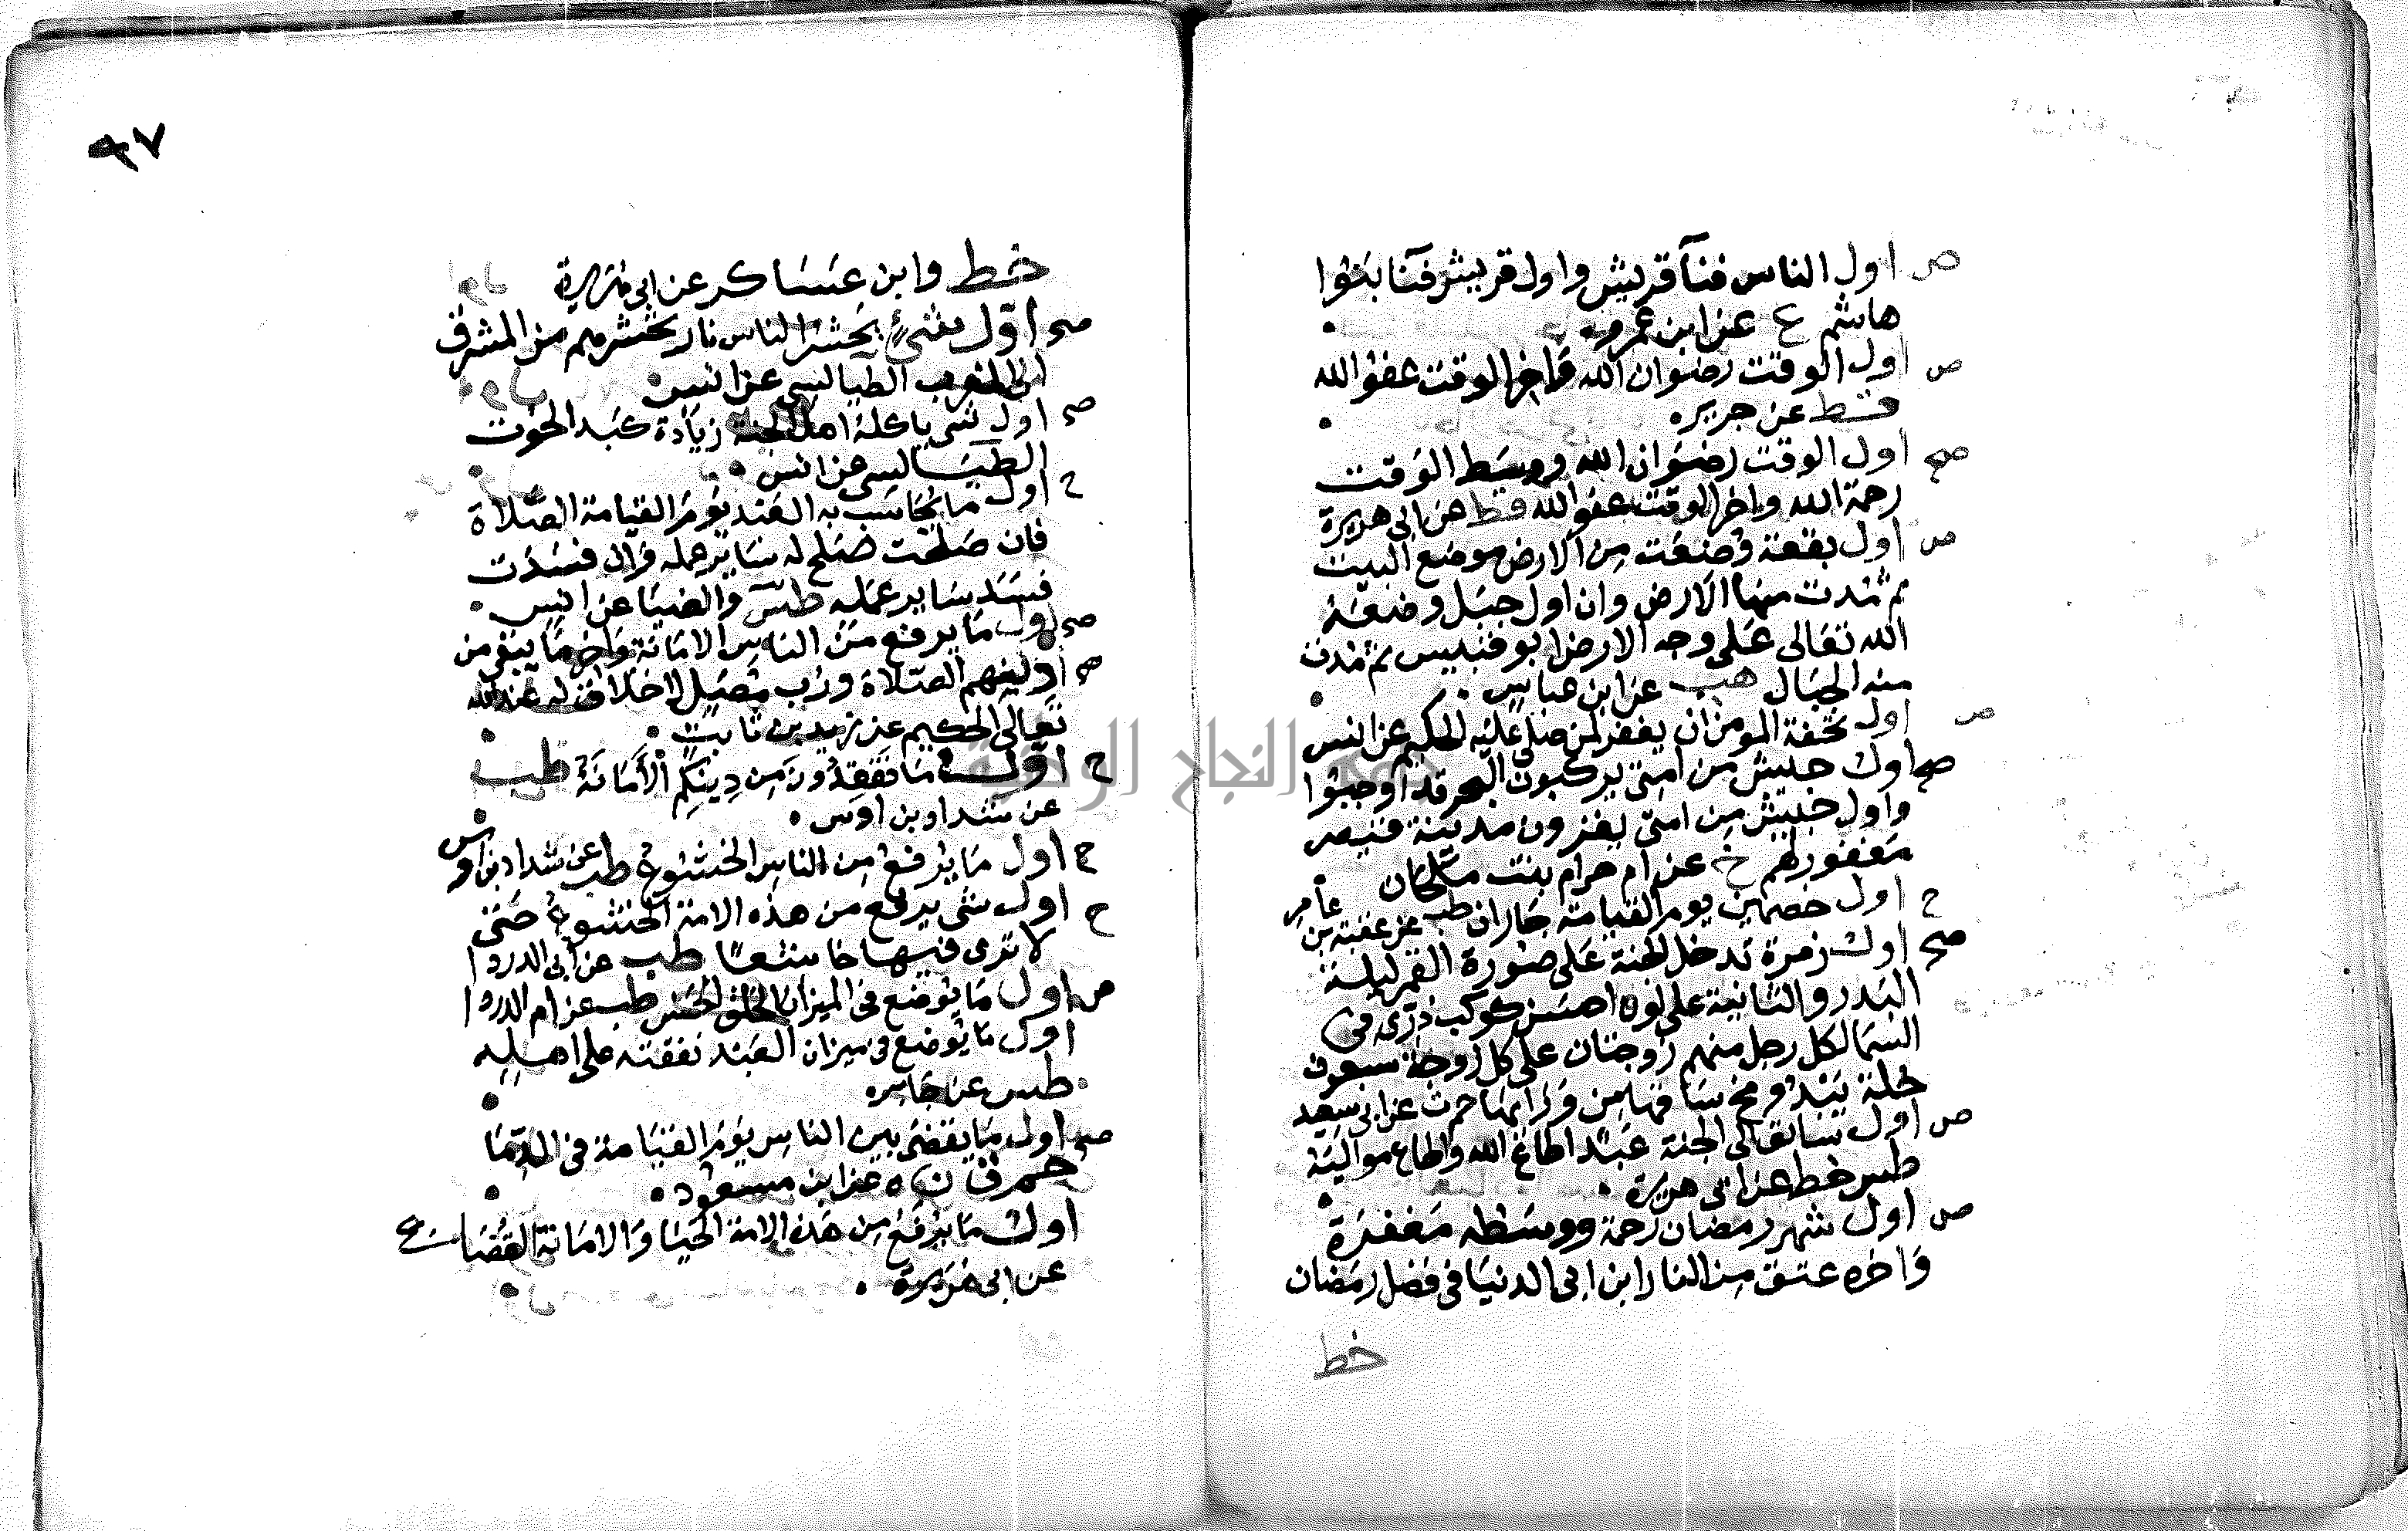 ص اول الناس فنآ قريش واول قريش فنآ بنوا
هاشم ع عن ابن عمرو
ص اول الوقت رضوان الله واخر الوقت عفو الله
قط عن جرير
صح اول الوقت رضوان الله ووسط الوقت
رحمة الله واخر الوقت عفو الله قط عن ابي هريرة
ص اول بقعة وضعت من الارض موضع البيت
ثم مُدت منها الارض وان اول جبل وضعه
الله تعالى على وجه الارض ابو قبيس ثم مُدت
منه الجبال هب عن ابن عباس
ص اول تحفة المومن ان يغفر لمن صلى عليه الحكيم عن انس
صح اول جيش من امتي يركبون البحر قد اوجبوا
واول جيش من امتي يغزون مدينة قيصر
مغفور لهم خ عن ام حرام بنت ملحان
ح اول خصمين يوم القيامة جاران طب عن عقبة بن عامر
صح اول زمرة تدخل الجنة على صورة القمر ليلة
البدر والثانية على لون احسن كوكب دُرّي في
السما لكل رجل منهم زوجتان على كل زوجة سبعون
حلة يبدو مخ ساقها من ورائها حم ت عن ابي سعيد
ص اول سابق الى الجنة عبد اطاع الله واطاع مواليه
طس خط عن ابي هريرة
ص اول شهر رمضان رحمة ووسطه مغفرة
واخره عتق من النار ابن ابي الدنيا في فضل رمضان
خط
٩٧
خط وابن عساكر عن ابي هريرة
صح اوّل شئ يحشر الناس نار تحشرهم من المشرق
الى المغرب الطيالسي عن انس
صح اول شي ياكله اهل الجنة زيادة كبد الحوت
الطيالسي عن انس
ح اول ما يحاسب به العبد يوم القيامة الصلاة
فان صلحت صلح له ساير عمله وان فسدت
فسد ساير عمله طس والضيا عن انس
صح اول ما يرفع من الناس الامانة واخر ما يبقى من
صح دينهم الصلاة ورُب مُصَلٍ لا خلاق له عند الله
تعالى الحكيم عن زيد بن ثابت
ح اوّل ما تفقدون من دينكم الأمانة طب
عن شداد بن اوس
ح اول ما يرفع من الناس الخشوع طب عن شداد بن اوس
ح اول شي يرفع من هذه الامة الخشوع حتى
لا ترى فيها خاشعًا طب عن ابي الدردا
ص اول ما يوضع في الميزان الخلق الحسن طب عن ام الدردا
اول ما يوضع في ميزان العبد نفقته على اهله
طس عن جابر
صح اول ما يقضى بين الناس يوم القيامة في الدما
حم ق ن ه عن ابن مسعود
اول ما يرفع من هذه الامة الحيا والامانة القضاعي
عن ابي هريرة
جامعة النجاح الوطنية